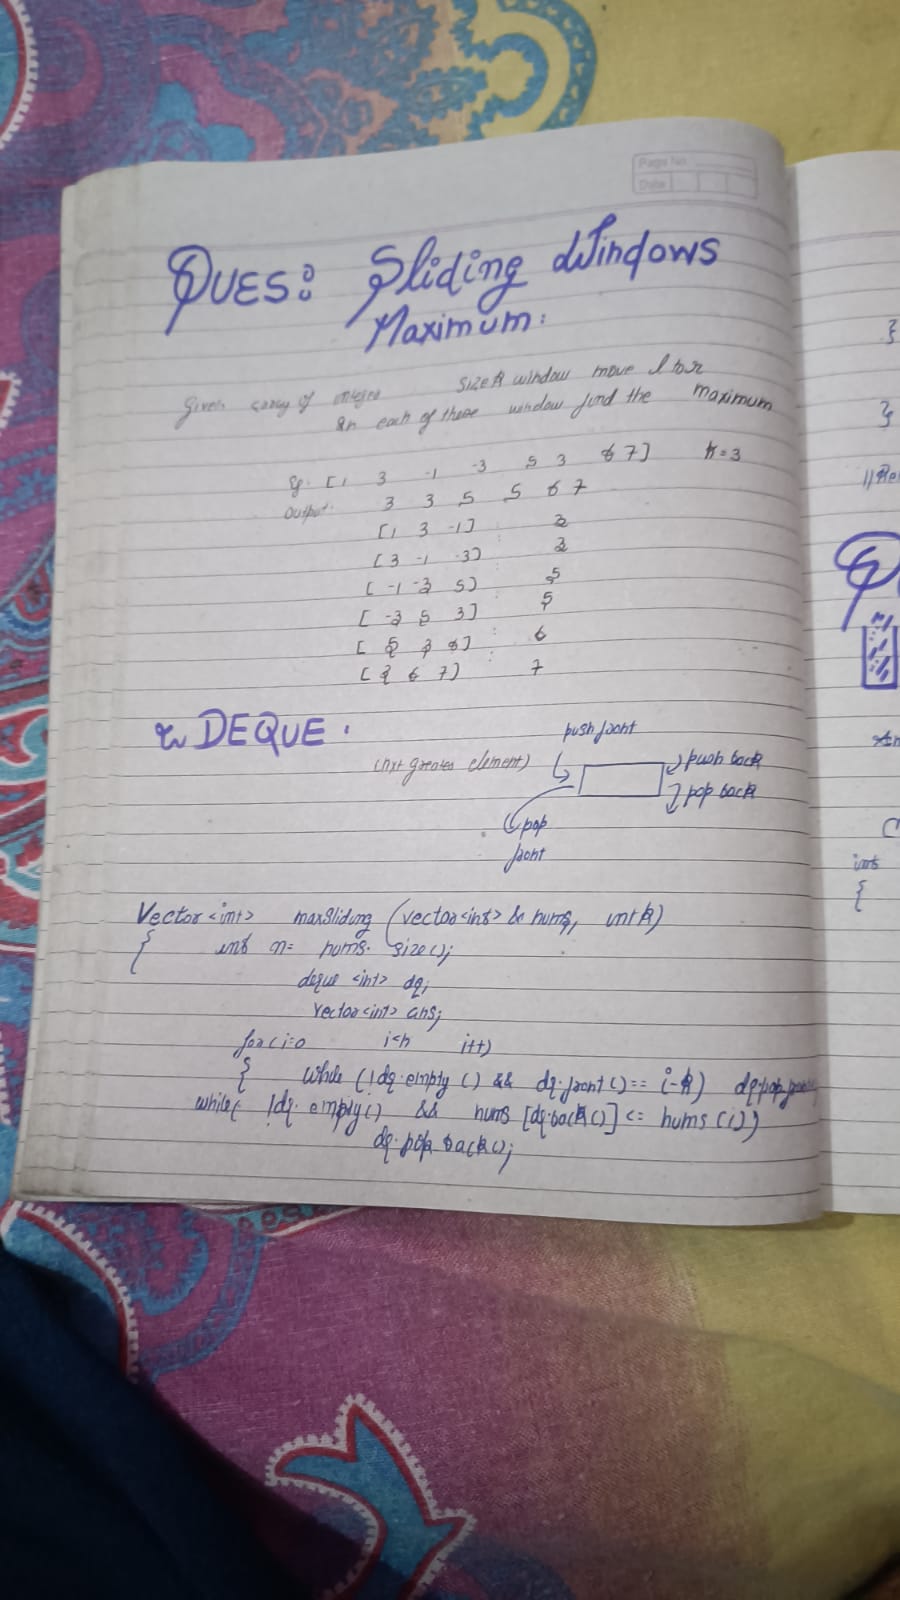 Page No.
Date
QUES: Sliding Windows
Maximum:
Given array of size k window move l to r
In each of these window find the maximum
Eg. [1 3 -1 -3 5 3 6 7] k=3
Output. 3 3 5 5 6 7
[1 3 -1] : 3
[3 -1 -3] : 3
[-1 -3 5] : 5
[-3 5 3] : 5
[5 3 6] : 6
[3 6 7] : 7
DEQUE.
(nxt greater element)
push front
push back
pop back
pop
front
Vector<int> maxSliding (vector<int> & nums, int k)
{ int n= nums.size();
deque <int> dq;
vector<int> ans;
for(i=0 i<n i++)
{ while (!dq.empty() && dq.front()== i-k)
while( !dq.empty() && nums [dq.back()] <= nums(i))
dq.pop back();
}
}
int
{